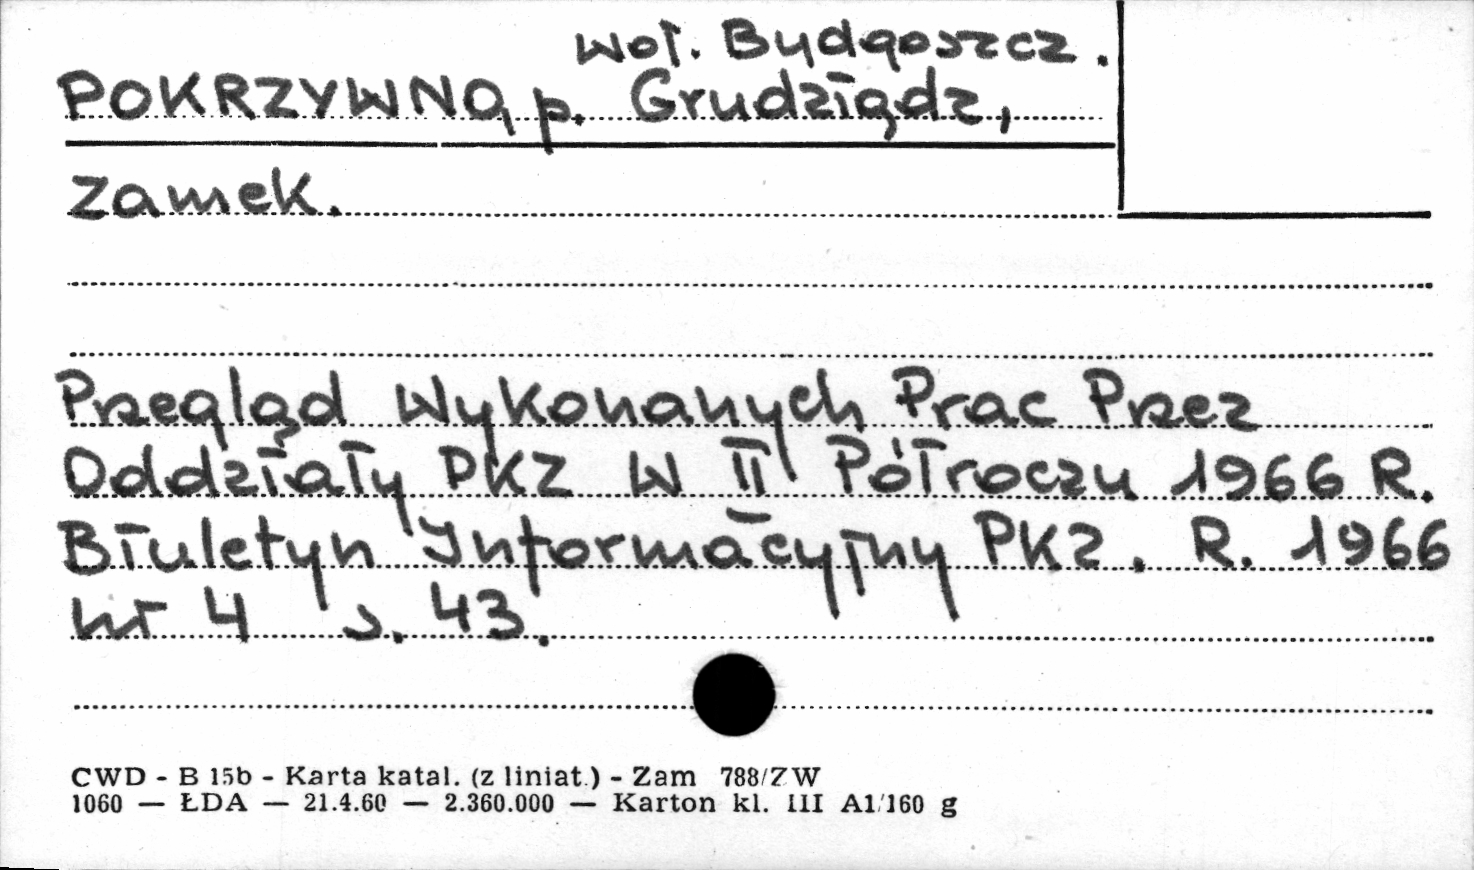 woj. Bydgoszcz.
POKRZYWNO, p. Grudziądz,
zamek.
Przegląd Wykonanych Prac Przez
Oddziały PKZ W II Półroczu 1966 R.
Biuletyn Informacyjny PKZ. R. 1966
nr 4 s. 43.
CWD - B 15b - Karta katal. (z liniat.) - Zam 788/ZW
1060 — ŁDA — 21.4.60 — 2.360.000 — Karton kl. III A1/160 g